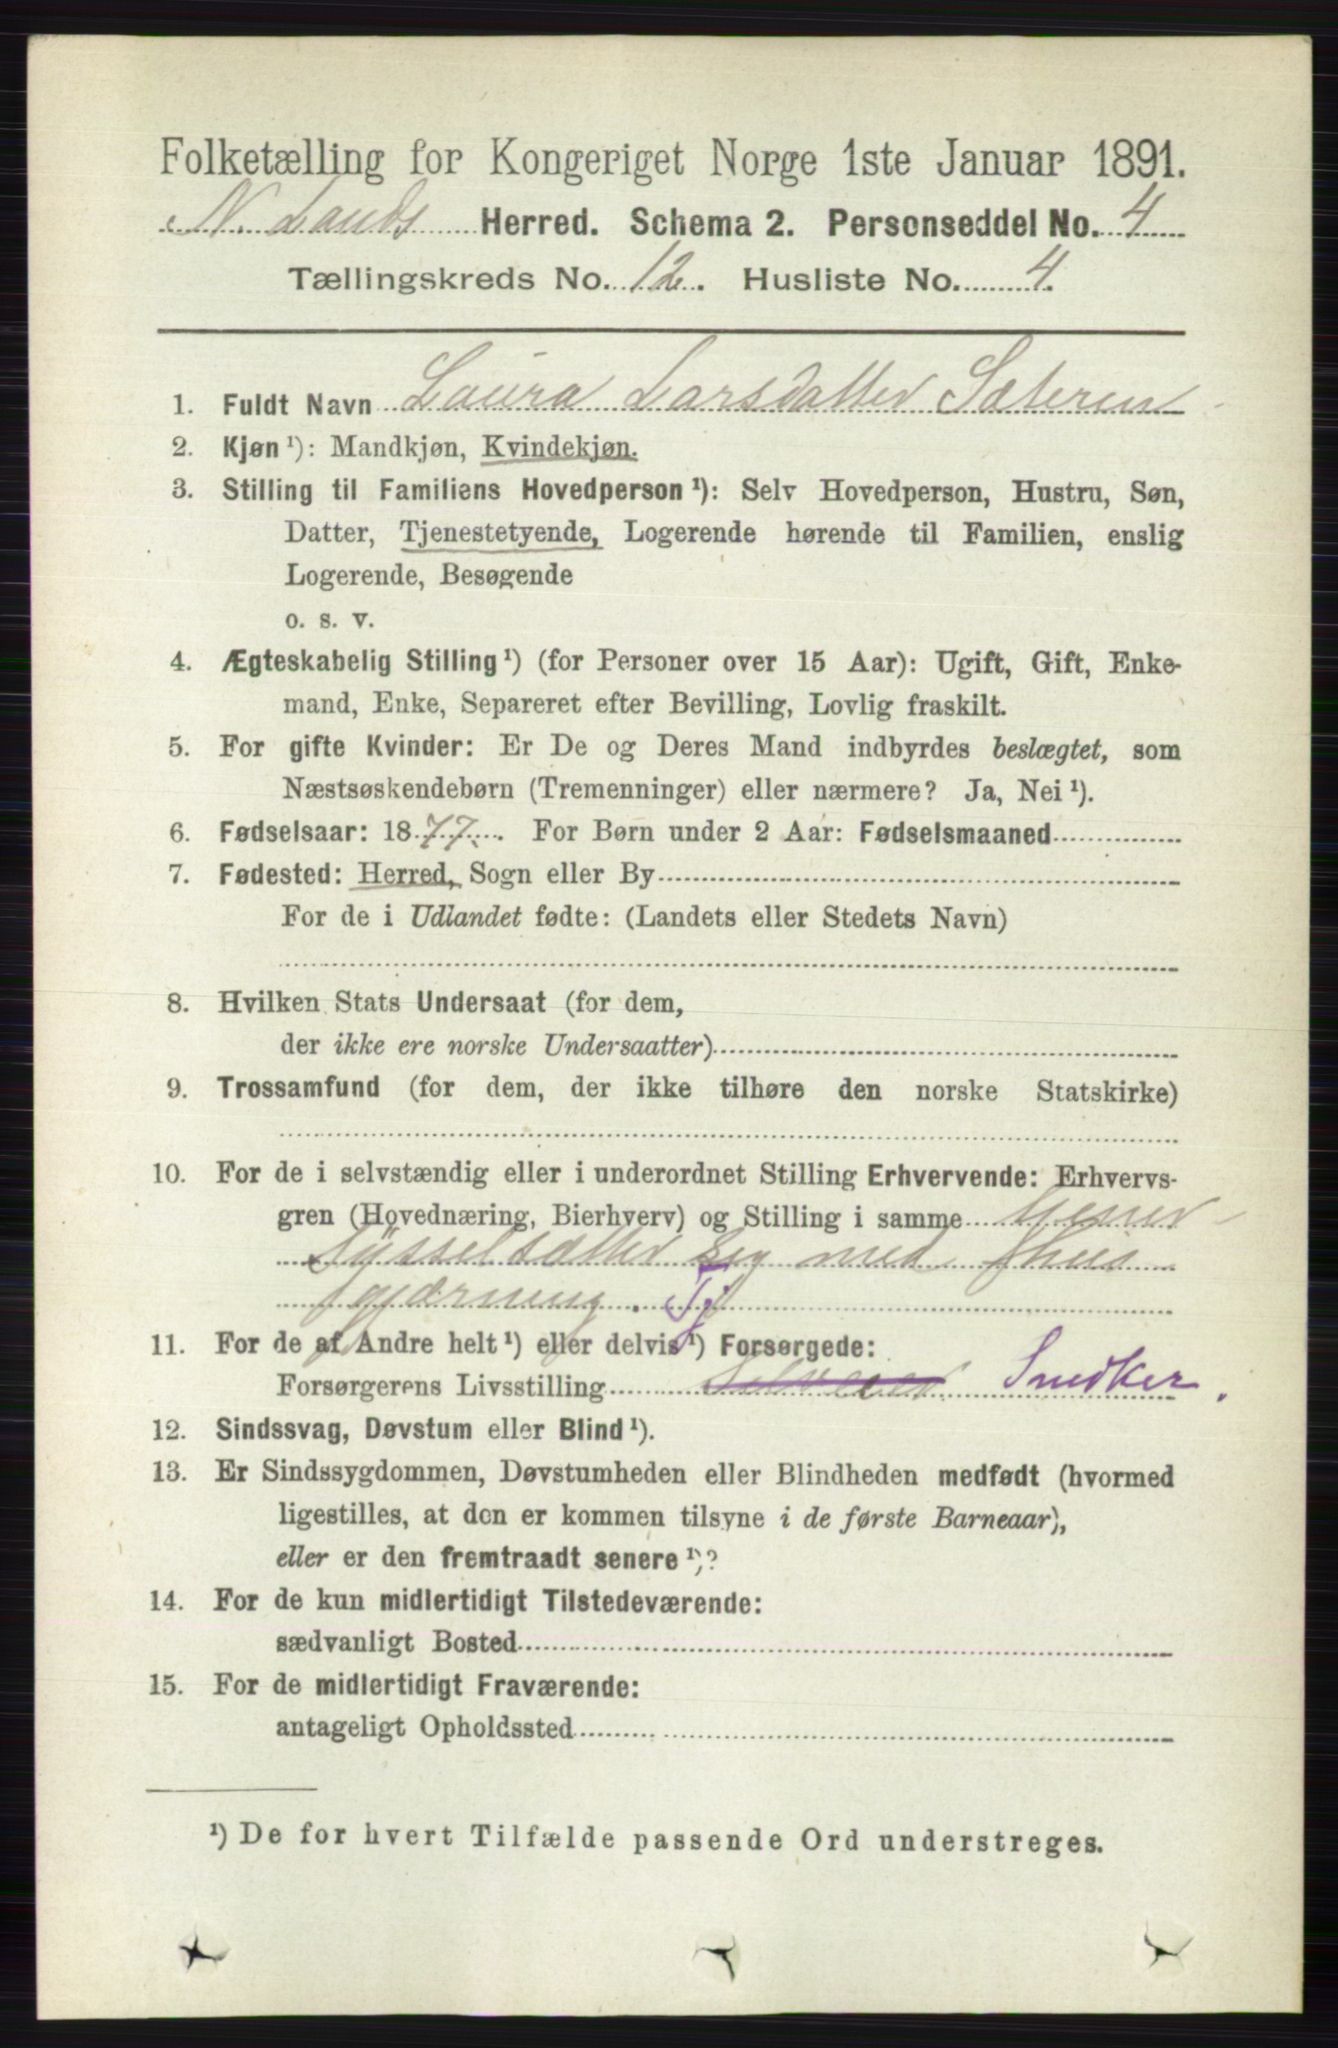 Folketælling for Kongeriget Norge 1ste Januar 1891.
N. Lands Herred. Schema 2. Personseddel No. 4
Tællingskreds No. 12. Husliste No. 4.
1. Fuldt Navn Laura Larsdatter Sæteren
2. Kjøn¹): Mandkjøn, Kvindekjøn.
3. Stilling til Familiens Hovedperson¹): Selv Hovedperson, Hustru, Søn,
Datter, Tjenestetyende, Logerende hørende til Familien, enslig
Logerende, Besøgende
o. s. v.
4. Ægteskabelig Stilling¹) (for Personer over 15 Aar): Ugift, Gift, Enke-
mand, Enke, Separeret efter Bevilling, Lovlig fraskilt.
5. For gifte Kvinder: Er De og Deres Mand indbyrdes beslægtet, som
Næstsøskendebørn (Tremenninger) eller nærmere? Ja, Nei¹).
6. Fødselsaar: 1877. For Børn under 2 Aar: Fødselsmaaned
7. Fødested: Herred, Sogn eller By
For de i Udlandet fødte: (Landets eller Stedets Navn)
8. Hvilken Stats Undersaat (for dem,
der ikke ere norske Undersaatter)
9. Trossamfund (for dem, der ikke tilhøre den norske Statskirke)
10. For de i selvstændig eller i underordnet Stilling Erhvervende: Erhvervs-
gren (Hovednæring, Bierhverv) og Stilling i samme tjener
sysselsætter sig med Huus
gjærning. Tj
11. For de af Andre helt¹) eller delvis¹) Forsørgede:
Forsørgerens Livsstilling Selveier Snedker.
12. Sindssvag, Døvstum eller Blind¹).
13. Er Sindssygdommen, Døvstumheden eller Blindheden medfødt (hvormed
ligestilles, at den er kommen tilsyne i de første Barneaar),
eller er den fremtraadt senere¹)?
14. For de kun midlertidigt Tilstedeværende:
sædvanligt Bosted
15. For de midlertidigt Fraværende:
antageligt Opholdssted
¹) De for hvert Tilfælde passende Ord understreges.